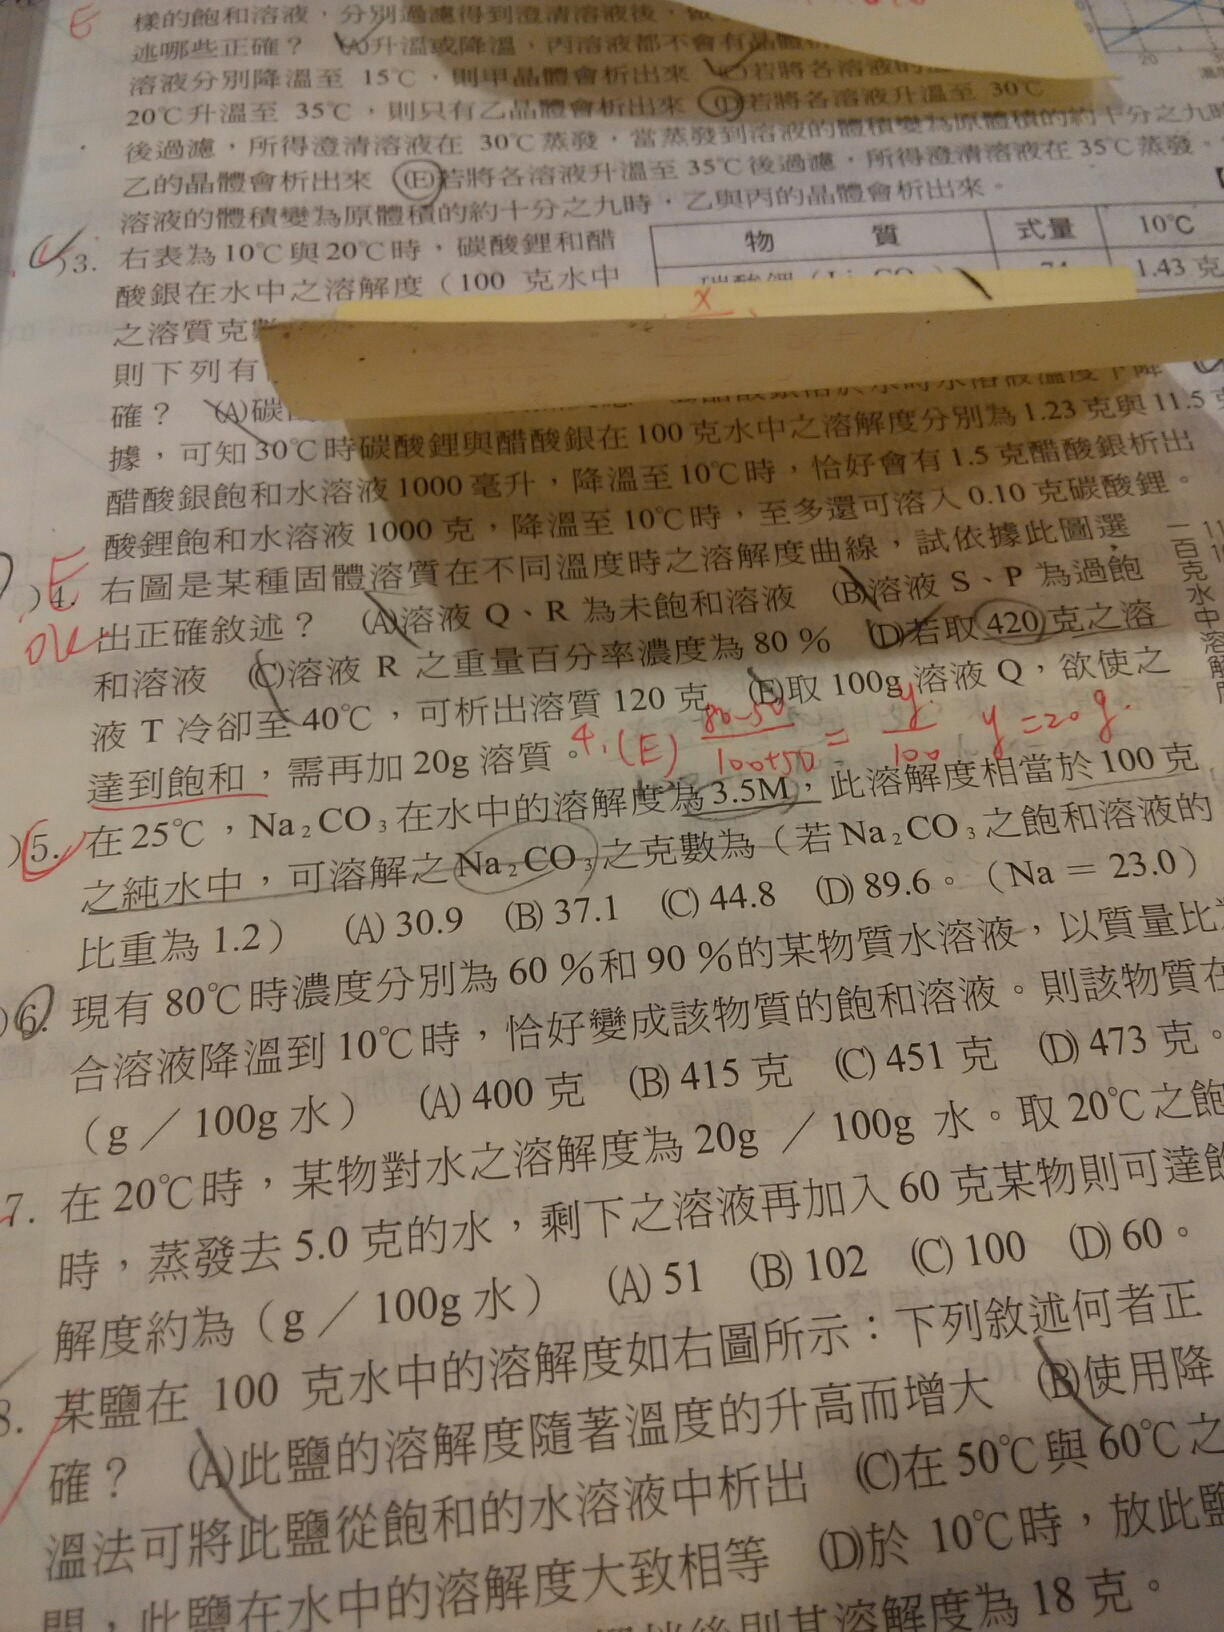 樣的飽和溶液，分別過濾得到澄清溶液後，
述哪些正確？ (A)升溫或降溫，丙溶液都不會有晶體析
溶液分別降溫至 15℃，則甲晶體會析出來 (C)若將各溶液的溫
20℃升溫至 35℃，則只有乙晶體會析出來 (D)若將各溶液升溫至 30℃
後過濾，所得澄清溶液在 30℃蒸發，當蒸發到溶液的體積變為原體積的約十分之九時
乙的晶體會析出來 (E)若將各溶液升溫至 35℃後過濾，所得澄清溶液在 35℃蒸發，
溶液的體積變為原體積的約十分之九時，乙與丙的晶體會析出來。
)3. 右表為 10℃與20℃時，碳酸鋰和醋
酸銀在水中之溶解度（100 克水中
之溶質克數
則下列有
確？ (A)碳
物質 式量 10℃
碳酸鋰（Li₂CO₃） 74 1.43 克
x
據，可知30℃時碳酸鋰與醋酸銀在 100 克水中之溶解度分別為 1.23 克與 11.5 克
醋酸銀飽和水溶液 1000 毫升，降溫至 10℃時，恰好會有 1.5 克醋酸銀析出
酸鋰飽和水溶液 1000 克，降溫至 10℃時，至多還可溶入 0.10 克碳酸鋰。
E
)4. 右圖是某種固體溶質在不同溫度時之溶解度曲線，試依據此圖選
ok 出正確敘述？ (A)溶液 Q、R 為未飽和溶液 (B)溶液 S、P 為過飽
和溶液 (C)溶液 R 之重量百分率濃度為 80 % (D)若取 420 克之溶
液 T 冷卻至 40℃，可析出溶質 120 克 (E)取 100g 溶液 Q，欲使之
達到飽和，需再加 20g 溶質。
4.(E) 80-50/100+50 = y/100 y=20g.
一百克水中溶解
)5. 在 25℃，Na₂CO₃在水中的溶解度為 3.5M，此溶解度相當於 100 克
之純水中，可溶解之 Na₂CO₃之克數為（若 Na₂CO₃之飽和溶液的
比重為 1.2） (A) 30.9 (B) 37.1 (C) 44.8 (D) 89.6。（Na = 23.0）
)6. 現有 80℃時濃度分別為 60 %和 90 %的某物質水溶液，以質量比
合溶液降溫到 10℃時，恰好變成該物質的飽和溶液。則該物質在
（g／100g 水） (A) 400 克 (B) 415 克 (C) 451 克 (D) 473 克。
7. 在 20℃時，某物對水之溶解度為 20g ／100g 水。取 20℃之飽
時，蒸發去 5.0 克的水，剩下之溶液再加入 60 克某物則可達飽
解度約為（g／100g 水） (A) 51 (B) 102 (C) 100 (D) 60。
8. 某鹽在 100 克水中的溶解度如右圖所示：下列敘述何者正
確？ (A)此鹽的溶解度隨著溫度的升高而增大 (B)使用降
溫法可將此鹽從飽和的水溶液中析出 (C)在 50℃與 60℃之
間，此鹽在水中的溶解度大致相等 (D)於 10℃時，放此鹽
後則其溶解度為 18 克。